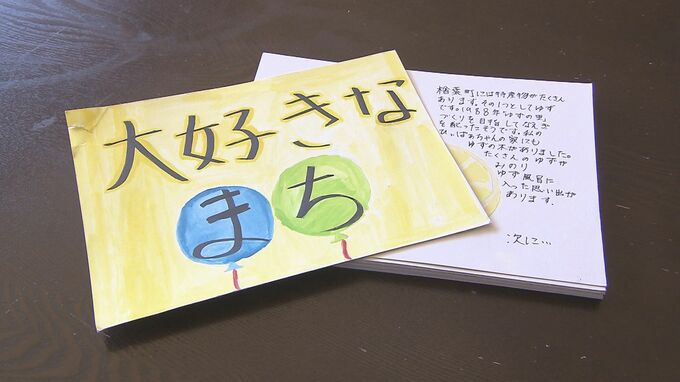 大好きな
まち
楢葉町には特産物がたくさん
あります。その1つとしてゆず
です。1988年「ゆずの里」
づくりを目指してなえぎ
を配ったそうです。私の
ひいばぁちゃんの家にも
ゆずの木がありました。
たくさんのゆずが
みのり
ゆず風呂に
入った思い出が
あります。
次に…